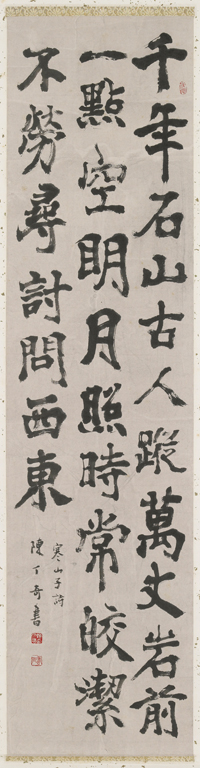 千年石山古人蹤萬丈岩前
一點空明月照時常皎潔
不勞尋討問西東
寒山子詩
陳丁奇書